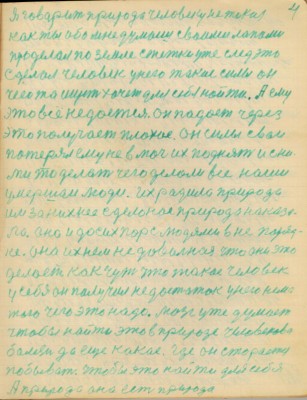 4
Я говорит природа человеку не такая
как ты обо мне думаеш своими лапами
проделал по земле стёжки уже след это
сделал человек у него такие силы он
чего то ищет хочет для себя найти. А ему
это всё не дается. Он падает через
это получает плохое. Он силы свои
потерял ему не в моч их поднят и сни
ми то делат чего делали все наши
умершии люди. их родила природа
им за них нее сделаное природа наказа
ла. она и до сих пор с людями в не поряд
ке. Она их нем не довольная что они это
делает как чут это такое человек
у себя он получил недостаток у него нема
того чего это надо. Мозг уже думает
чтобы найти это в природе человеково
болезнь да еще какая. Где он старается
побыват. Чтобы это найти для себя
А природа она ест природа